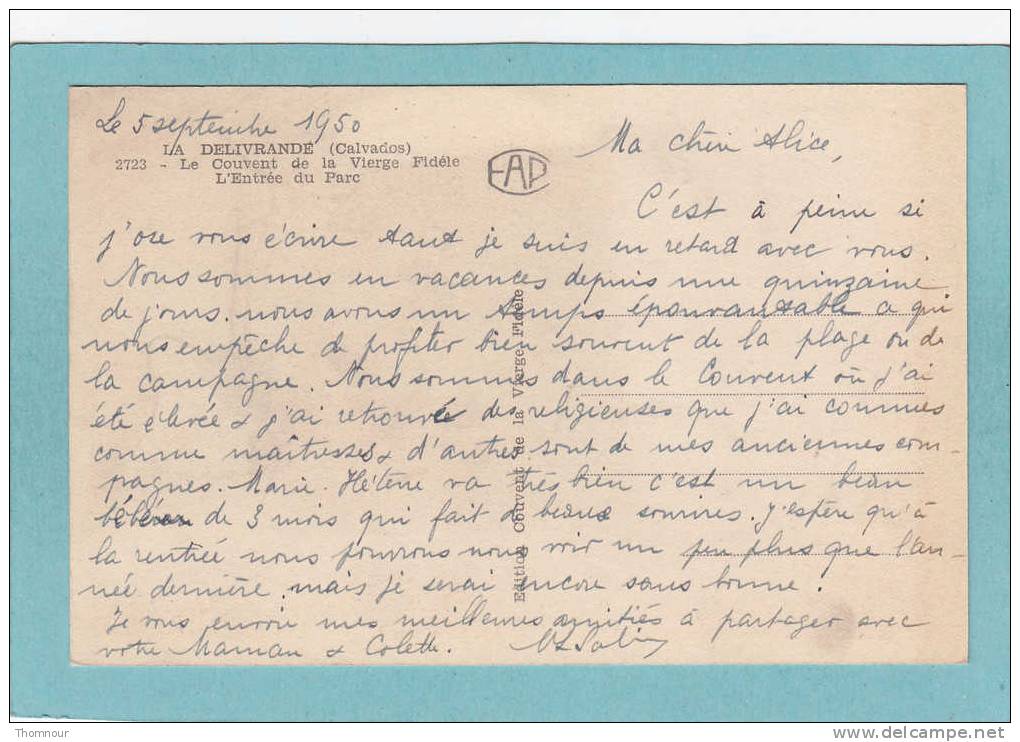 Le 5 septembre 1950
LA DELIVRANDE (Calvados)
2723 - Le Couvent de la Vierge Fidéle
L'Entrée du Parc
EAP
Ma chère Alice,
C'est à peine si
j'ose vous écrire tant je suis en retard avec vous.
Nous sommes en vacances depuis une quinzaine
de jours. nous avons un temps épouvantable ce qui
nous empêche de profiter bien souvent de la plage ou de
la campagne. Nous sommes dans le Couvent où j'ai
été élevée & j'ai retrouvé des religieuses que j'ai connues
comme maîtresses & d'autres sont de mes anciennes com-
pagnes. Marie-Hélène va très bien c'est un beau
de 3 mois qui fait de beaux sourires. J'espère qu'à
la rentrée nous pourrons nous voir un peu plus que l'an-
née dernière. mais je serai encore sans bonne.
Je vous envoie mes meilleures amitiés à partager avec
votre Maman & Colette.
Edition Couvent de la Vierge Fidèle
Thomnour
www.delcampe.net